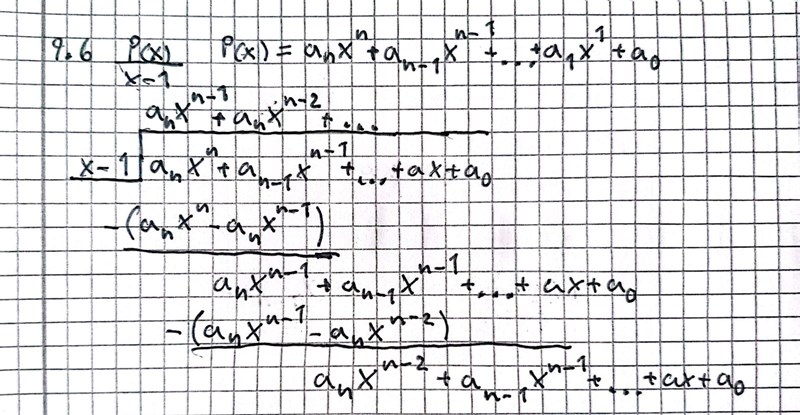 9.6 P(x)/x-1 P(x) = aₙxⁿ + aₙ₋₁xⁿ⁻¹ + ... + a₁x¹ + a₀
aₙxⁿ⁻¹ + aₙxⁿ⁻² + ...
x-1 | aₙxⁿ + aₙ₋₁xⁿ⁻¹ + ... + ax + a₀
-(aₙxⁿ - aₙxⁿ⁻¹)
aₙxⁿ⁻¹ + aₙ₋₁xⁿ⁻¹ + ... + ax + a₀
-(aₙxⁿ⁻¹ - aₙxⁿ⁻²)
aₙxⁿ⁻² + aₙ₋₁xⁿ⁻¹ + ... + ax + a₀